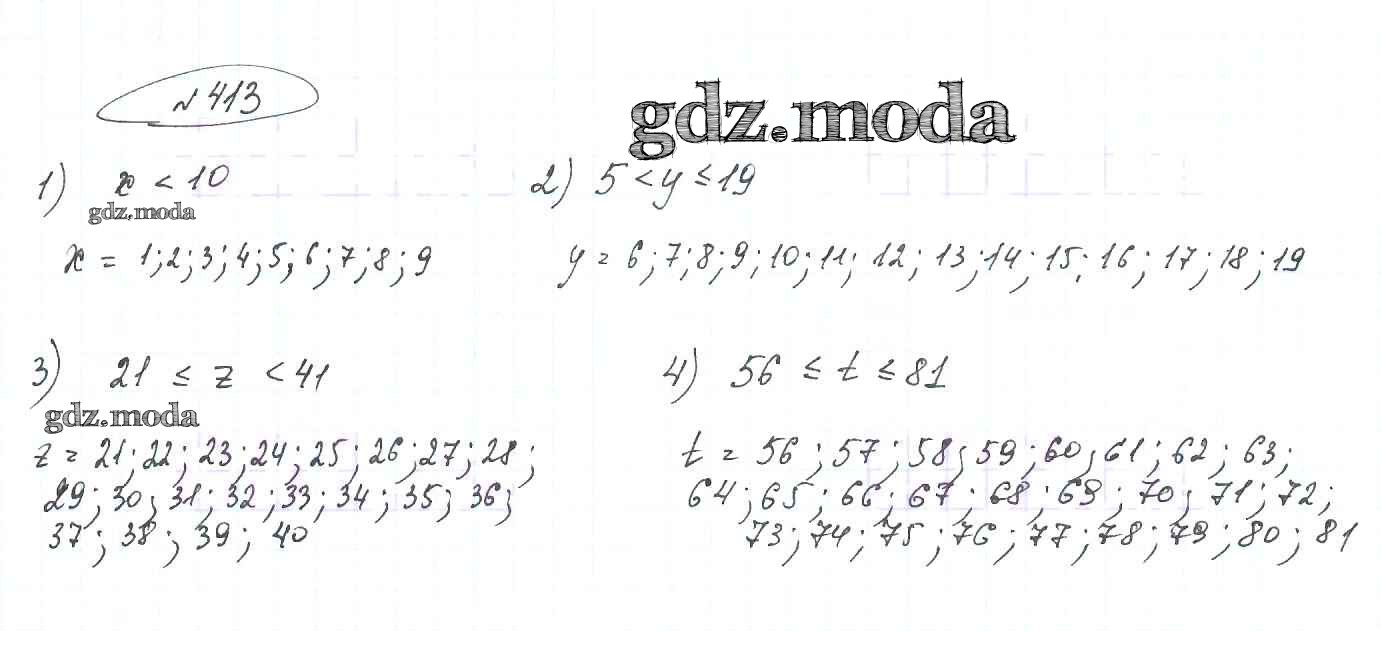 № 413
gdz.moda
1) x < 10
2) 5 < y ≤ 19
gdz.moda
x = 1; 2; 3; 4; 5; 6; 7; 8; 9
y = 6; 7; 8; 9; 10; 11; 12; 13; 14; 15; 16; 17; 18; 19
3) 21 ≤ z < 41
4) 56 ≤ t ≤ 81
gdz.moda
z = 21; 22; 23; 24; 25; 26; 27; 28;
29; 30; 31; 32; 33; 34; 35; 36;
37; 38; 39; 40
t = 56; 57; 58; 59; 60; 61; 62; 63;
64; 65; 66; 67; 68; 69; 70; 71; 72;
73; 74; 75; 76; 77; 78; 79; 80; 81